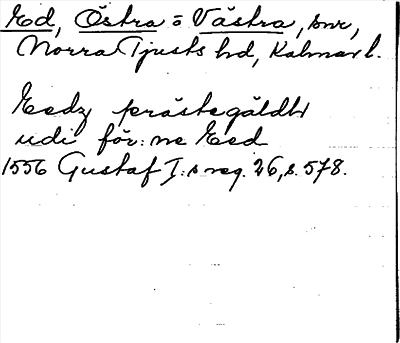 Ed, Östra o Västra, snr,
Norra Tjusts hd, Kalmar l.
Eedz prästegäldh
udi för:ne Eed
1556 Gustaf I:s reg. 26, s. 578.